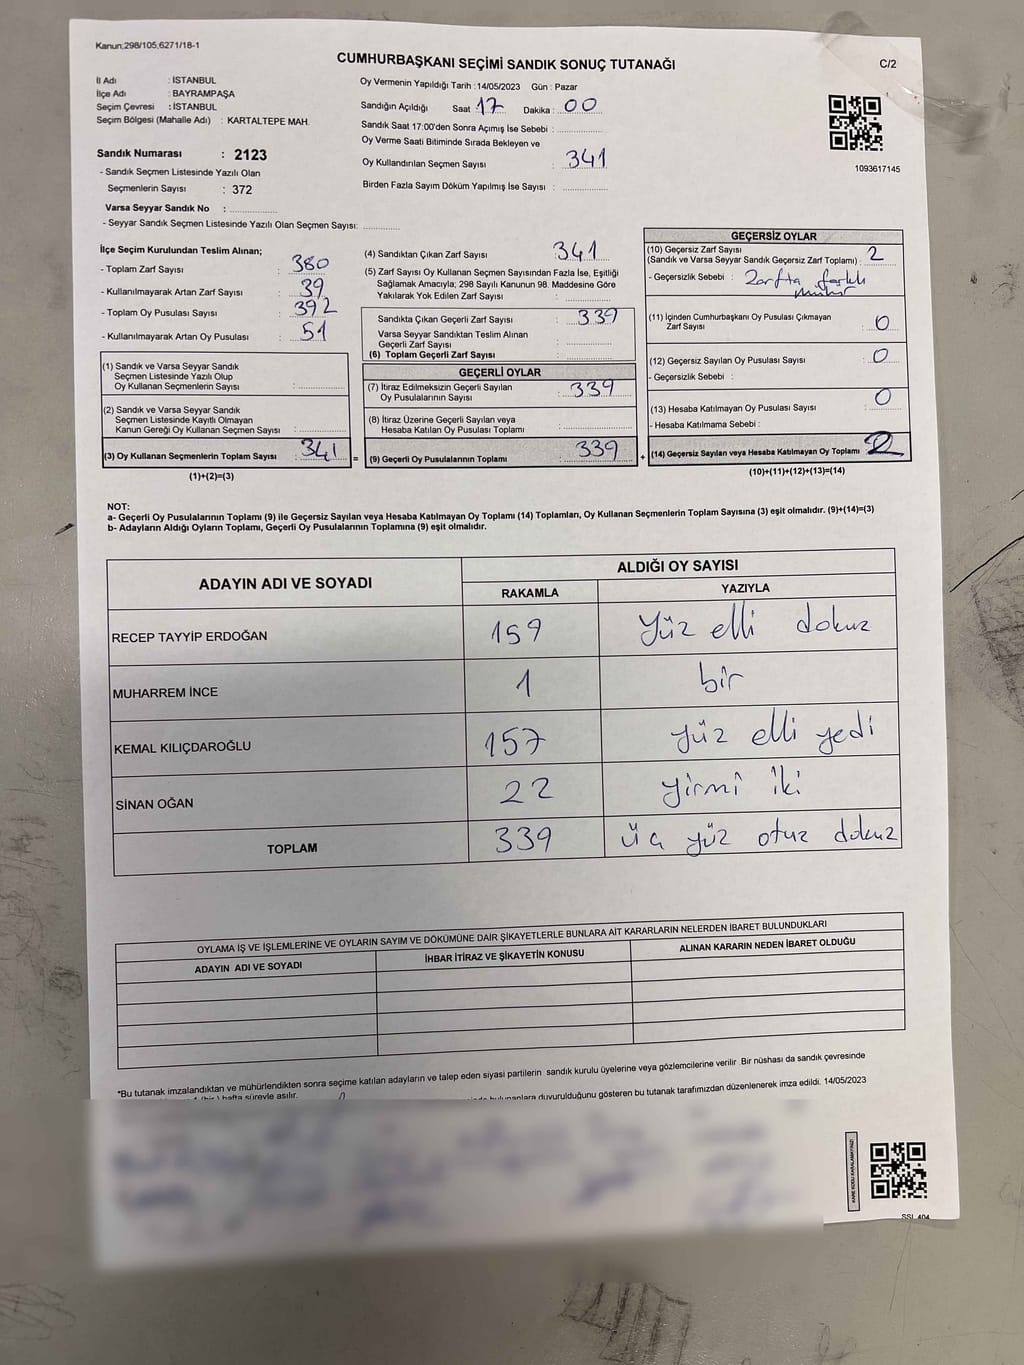 Kanun;298/105,6271/18-1
CUMHURBAŞKANI SEÇİMİ SANDIK SONUÇ TUTANAĞI
C/2
İl Adı : İSTANBUL
İlçe Adı : BAYRAMPAŞA
Seçim Çevresi : İSTANBUL
Seçim Bölgesi (Mahalle Adı) : KARTALTEPE MAH.
Sandık Numarası : 2123
- Sandık Seçmen Listesinde Yazılı Olan
Seçmenlerin Sayısı : 372
Varsa Seyyar Sandık No : ................
- Seyyar Sandık Seçmen Listesinde Yazılı Olan Seçmen Sayısı: ............
Oy Vermenin Yapıldığı Tarih : 14/05/2023 Gün : Pazar
Sandığın Açıldığı Saat 17 Dakika : 00
Sandık Saat 17:00'den Sonra Açımış İse Sebebi : ..............
Oy Verme Saati Bitiminde Sırada Bekleyen ve
Oy Kullandırılan Seçmen Sayısı : 341
Birden Fazla Sayım Döküm Yapılmış İse Sayısı : ..............
1093617145
İlçe Seçim Kurulundan Teslim Alınan;
- Toplam Zarf Sayısı : 380
- Kullanılmayarak Artan Zarf Sayısı : 39
- Toplam Oy Pusulası Sayısı : 392
- Kullanılmayarak Artan Oy Pusulası : 51
(1) Sandık ve Varsa Seyyar Sandık
Seçmen Listesinde Yazılı Olup
Oy Kullanan Seçmenlerin Sayısı : ..............
(2) Sandık ve Varsa Seyyar Sandık
Seçmen Listesinde Kayıtlı Olmayan
Kanun Gereği Oy Kullanan Seçmen Sayısı : ..............
(3) Oy Kullanan Seçmenlerin Toplam Sayısı : 341 =
(1)+(2)=(3)
(4) Sandıktan Çıkan Zarf Sayısı : 341
(5) Zarf Sayısı Oy Kullanan Seçmen Sayısından Fazla İse, Eşitliği
Sağlamak Amacıyla; 298 Sayılı Kanunun 98. Maddesine Göre
Yakılarak Yok Edilen Zarf Sayısı : ..............
Sandıkta Çıkan Geçerli Zarf Sayısı : 339
Varsa Seyyar Sandıktan Teslim Alınan
Geçerli Zarf Sayısı : ..............
(6) Toplam Geçerli Zarf Sayısı : ..............
GEÇERLİ OYLAR
(7) İtiraz Edilmeksizin Geçerli Sayılan
Oy Pusulalarının Sayısı : 339
(8) İtiraz Üzerine Geçerli Sayılan veya
Hesaba Katılan Oy Pusulası Toplamı : ..............
(9) Geçerli Oy Pusulalarının Toplamı : 339 +
GEÇERSİZ OYLAR
(10) Geçersiz Zarf Sayısı
(Sandık ve Varsa Seyyar Sandık Geçersiz Zarf Toplamı) : 2
- Geçersizlik Sebebi : Zarfta farklı
mühür
(11) İçinden Cumhurbaşkanı Oy Pusulası Çıkmayan
Zarf Sayısı : 0
(12) Geçersiz Sayılan Oy Pusulası Sayısı : 0
- Geçersizlik Sebebi :
(13) Hesaba Katılmayan Oy Pusulası Sayısı : 0
- Hesaba Katılmama Sebebi :
(14) Geçersiz Sayılan veya Hesaba Katılmayan Oy Toplamı : 2
(10)+(11)+(12)+(13)=(14)
NOT:
a- Geçerli Oy Pusulalarının Toplamı (9) ile Geçersiz Sayılan veya Hesaba Katılmayan Oy Toplamı (14) Toplamları, Oy Kullanan Seçmenlerin Toplam Sayısına (3) eşit olmalıdır. (9)+(14)=(3)
b- Adayların Aldığı Oyların Toplamı, Geçerli Oy Pusulalarının Toplamına (9) eşit olmalıdır.
ADAYIN ADI VE SOYADI ALDIĞI OY SAYISI
RAKAMLA YAZIYLA
RECEP TAYYİP ERDOĞAN 159 Yüz elli dokuz
MUHARREM İNCE 1 bir
KEMAL KILIÇDAROĞLU 157 yüz elli yedi
SİNAN OĞAN 22 yirmi iki
TOPLAM 339 üç yüz otuz dokuz
OYLAMA İŞ VE İŞLEMLERİNE VE OYLARIN SAYIM VE DÖKÜMÜNE DAİR ŞİKAYETLERLE BUNLARA AİT KARARLARIN NELERDEN İBARET BULUNDUKLARI
ADAYIN ADI VE SOYADI İHBAR İTİRAZ VE ŞİKAYETİN KONUSU ALINAN KARARIN NEDEN İBARET OLDUĞU
*Bu tutanak imzalandıktan ve mühürlendikten sonra seçime katılan adayların ve talep eden siyasi partilerin sandık kurulu üyelerine veya gözlemcilerine verilir .Bir nüshası da sandık çevresinde
hafta süreyle asılır. bulunanlara duyurulduğunu gösteren bu tutanak tarafımızdan düzenlenerek imza edildi. 14/05/2023
SSI 404